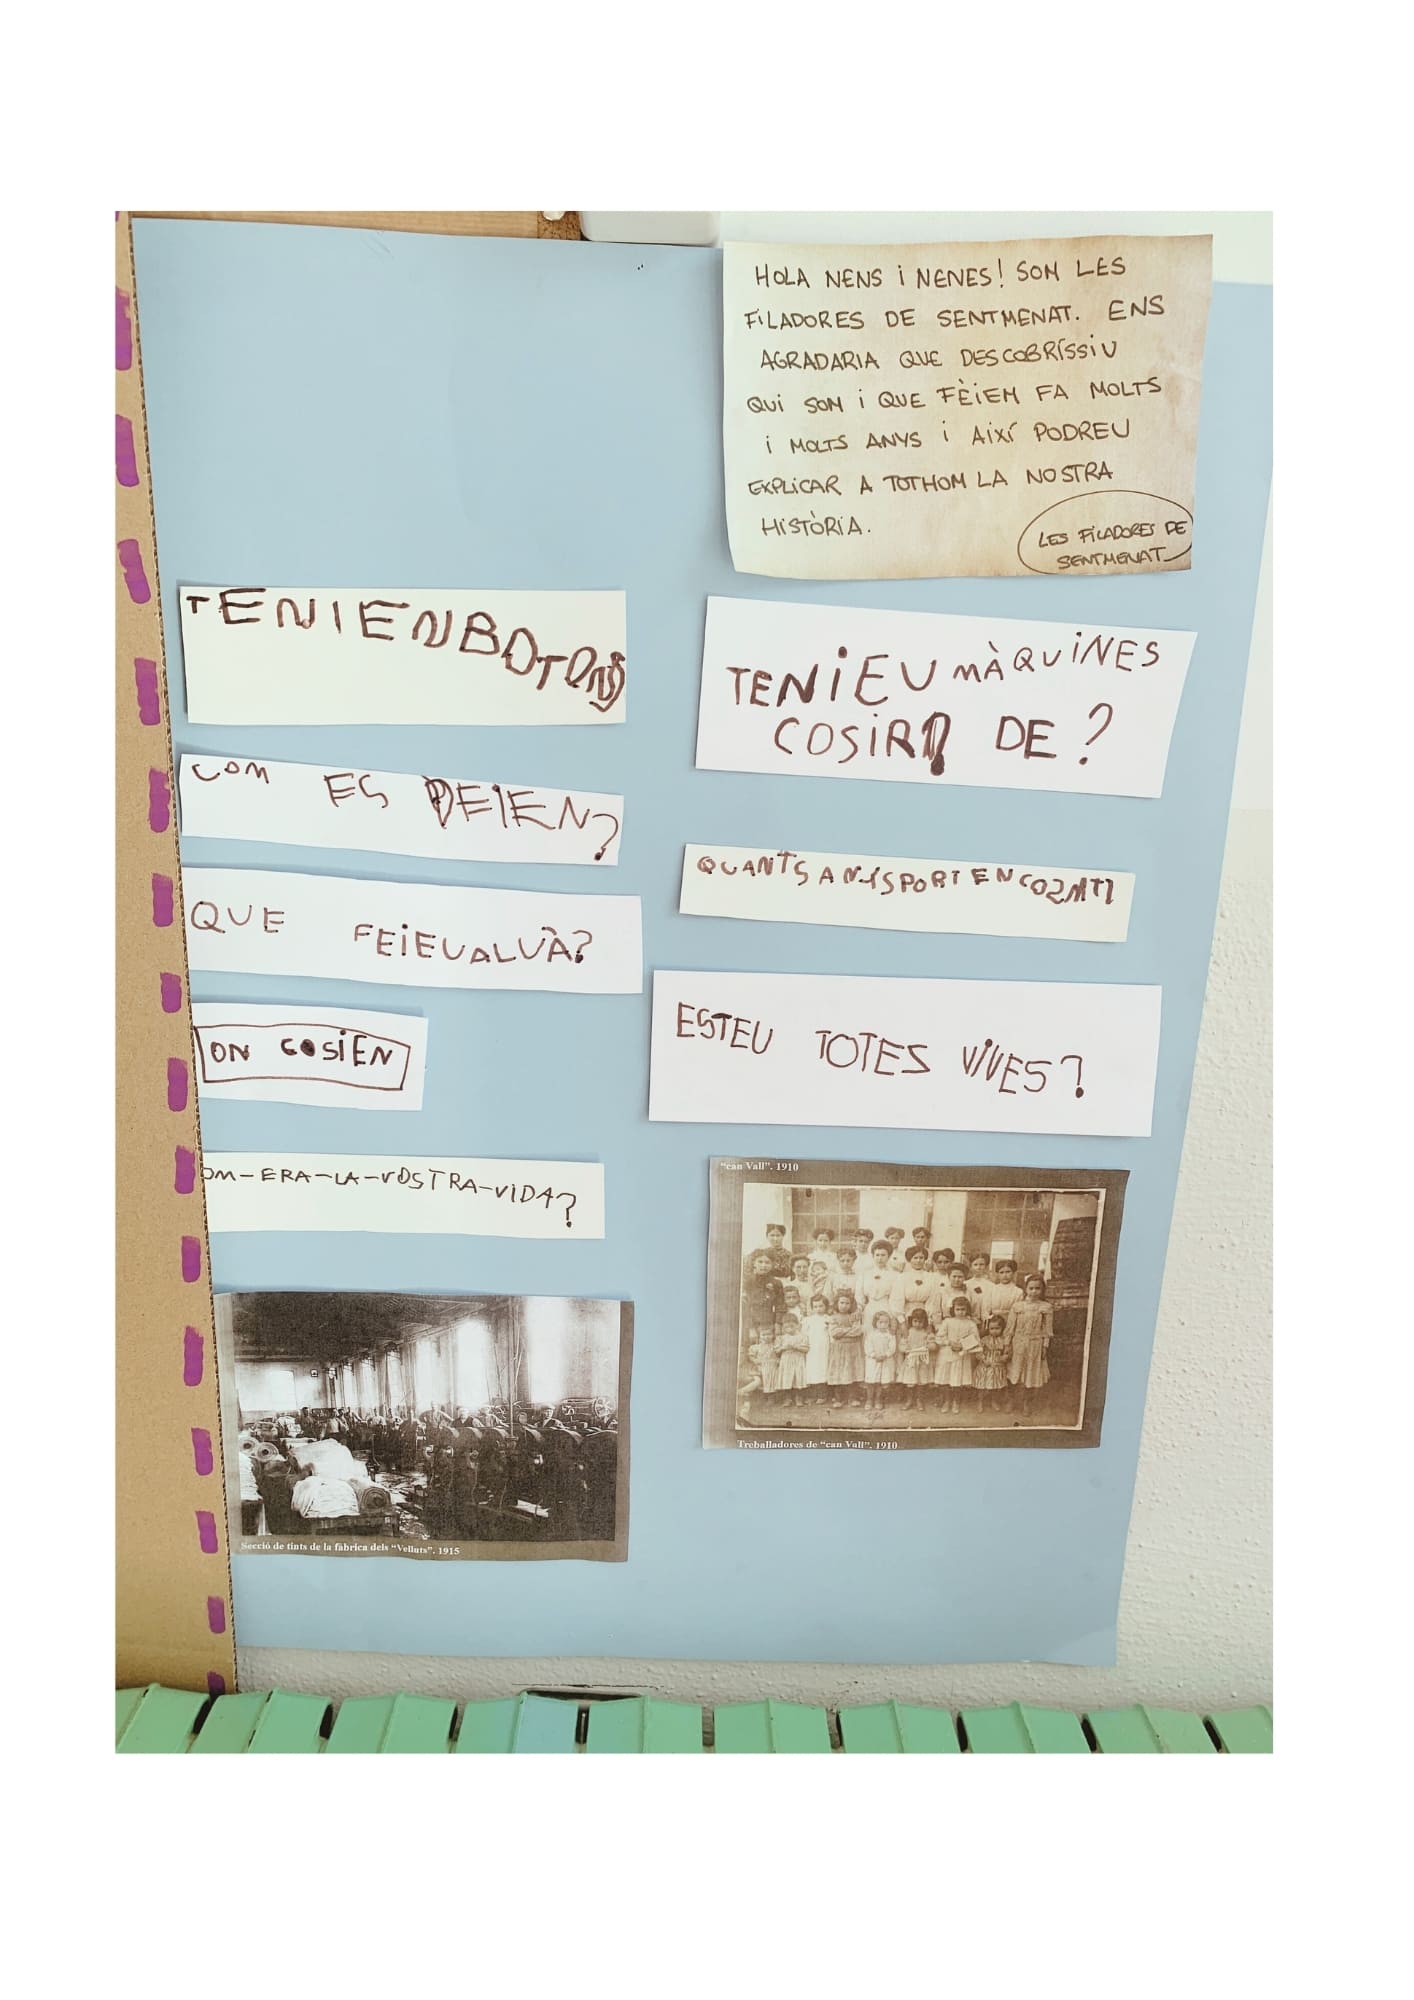 HOLA NENS i NENES! SOM LES
FiLADORES DE SENTMENAT. ENS
AGRADARIA QUE DESCOBRÍSSIU
QUi SOM i QUE FÈiEM FA MOLTS
i MOLTS ANYS i AIXÍ PODREU
EXPLiCAR A TOTHOM LA NOSTRA
HiSTÒRIA.
LES FiLADORES DE
SENTMENAT
TENIENBOTONS
TENiEU MÀQUiNES
COSiR DE?
COM ES DEIEN?
QUANTS ANYS PORTEN
QUE FEiEUALUÀ?
ON COSiEN
ESTEU TOTES ViVES?
OM-ERA-LA-VOSTRA-ViDA?
"can Vall". 1910
Treballadores de "can Vall". 1910
Secció de tints de la fàbrica dels "Velluts". 1915